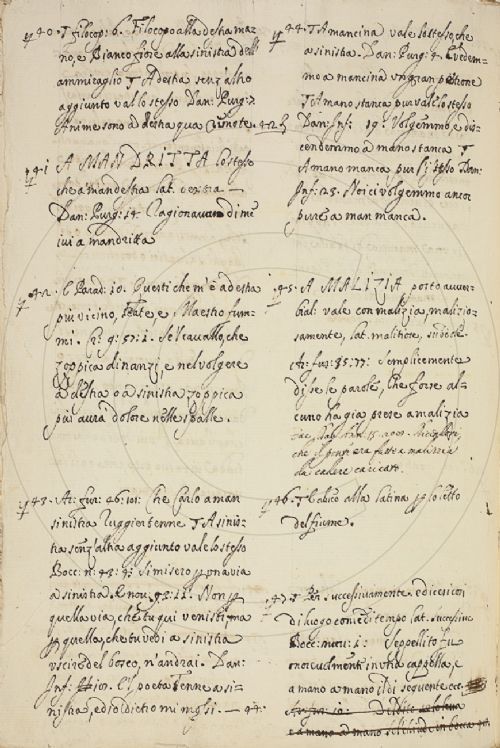 40. T Filocop: 6. Filocopo alla destra maz
no, e Biancofiore alla sinistra dell
ammiraglio T A destra senz'altro
aggiunto val lo stesso Dan: Purg: 2
Anime sono a destra qua
41 A MAN DRITTA lo stesso
che a man destra lat. dextra —
Dan: Purg: 14. Ragionavan di me
ivi a mandritta
42. E Parad: 10. Questi che m'è a destra
più vicino, Frate, e Maestro fum-
mi. Se'l cavallo, che
zoppica dinanzi, e nel volgere
a destra o a sinistra zoppica
più aurà dolore nelle spalle.
43. Ar: fur: 46: 101: Che Carlo a man
sinistra Ruggier tenne T A sinis-
tra senz'altro aggiunto vale lo stesso
Bocc: n: 43: 4: Si misero per una via
a sinistra. E nov: Non per
quella via, che tu qui venisti, ma
per quella, che tu vedi a sinistra
uscire del bosco, n'andrai. Dan:
Inf: E'l poeta tenne a si-
nistra, ed io dietro mi mossi. — 44:
44. T A mancina vale lo stesso, che
a sinistra. Dan: Purg: 4. E vedem-
mo a mancina un gran petrone
T A mano stanca pur vale lo stesso
Dan: Inf: 19: Volgemmo, e dis-
cendemmo a mano stanca T
A mano manca pur l'istesso Dan:
Inf: 25. Noi ci volgemmo ancor
pure a man manca.
45. A MALIZIA, posto avver-
bial: vale con malizia, malizio-
samente, lat. malitiose,
Ar: fur: 35: 77: Semplicemente
disse le parole, che forse al-
cuno ha già prese a malizia
che il ponte era fatto a malizia
da cadere caricato.
46. T Ablico alla latina per lo letto
del fiume.
47. T Per successivamente, e dicesi con
di luogo come di tempo lat. successive
Bocc: nov: 1: Seppellito fu
onorevolmente in una cappella, e
a mano a mano il dì seguente ecc.
a mano a mano